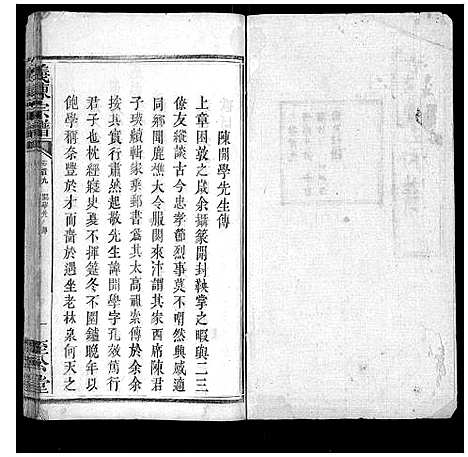 陳開學先生傳
上章困敦之歲余攝篆開封鞅掌之暇與二三
僚友縱談古今忠孝節烈事莫不喟然興感適
同鄉聞鹿樵大令服闋來汴謂其家西席陳君
子璜續輯家乘郵書為其太高祖索傳於余余
按其實行肅然起敬先生諱開學字孔效篤行
君子也枕經寢史夏不揮箑冬不圍鑪晚年以
飽學稱奈豐於才而嗇於遇坐老林泉何天之
義陳宗譜
卷首九
一